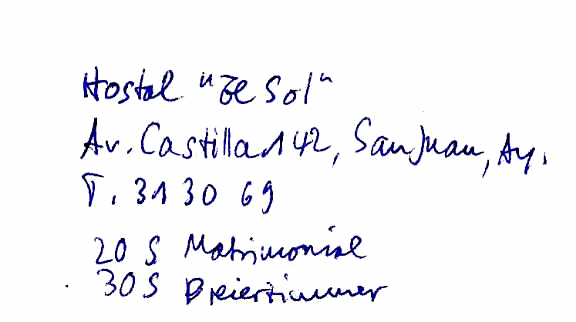 Hostal "El Sol"
Av. Castilla 142, San Juan, Ay.
T. 31 30 69
20 S Matrimonial
30 S Dreierzimmer